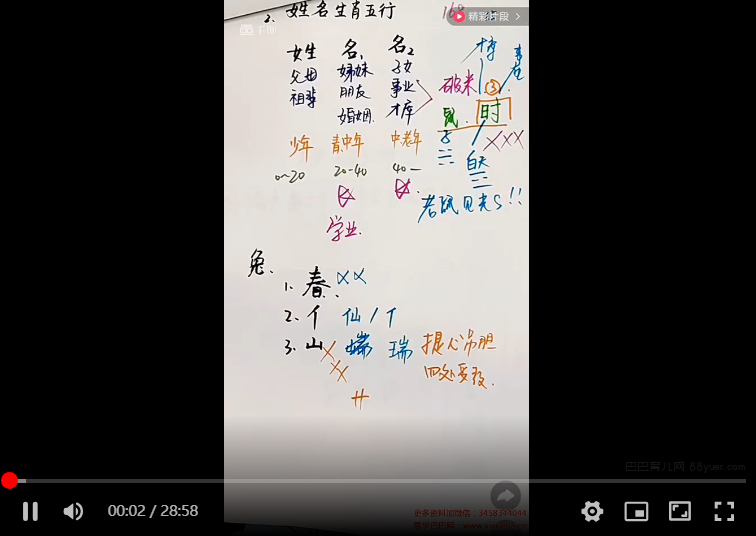 2. 姓名生肖五行
168
精彩片段
女生 名1 名2
父母 姊妹 子女
祖辈 朋友 事业
婚姻 才库
破米
③
鼠 时
子
白天
XXX
少年 青中年 中老年
0~20 20-40 40—
学业
老鼠见光S!!
兔
1. 春 XX
2. 亻 仙 / 亻
3. 山 瑞 提心吊胆
XXX
四处受
巴巴育儿网 88yuer.com
00:02 / 28:58